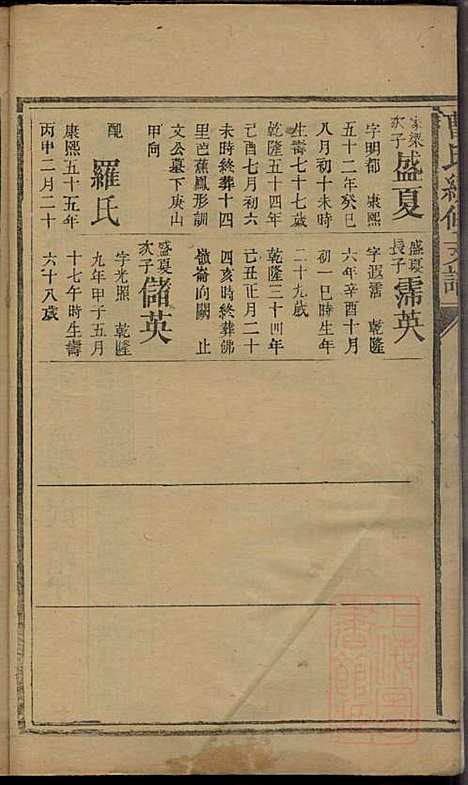 曹氏續修支譜
家梁
次子盛夏
字明都 康熙
五十二年癸巳
八月初十未時
生壽七十七歲
乾隆五十四年
己酉七月初六
未時終葬十四
里芭蕉鳳形訓
文公墓下庚山
甲向
配 羅氏
康熙五十五年
丙申二月二十
盛夏
長子霈英
字遐霑 乾隆
六年辛酉十月
初一巳時生年
二十九歲
乾隆三十四年
己丑正月二十
四亥時終葬佛
嶺崙向闕 止
盛夏
次子儲英
字光照 乾隆
九年甲子五月
十七午時生壽
六十八歲
上海圖書館藏